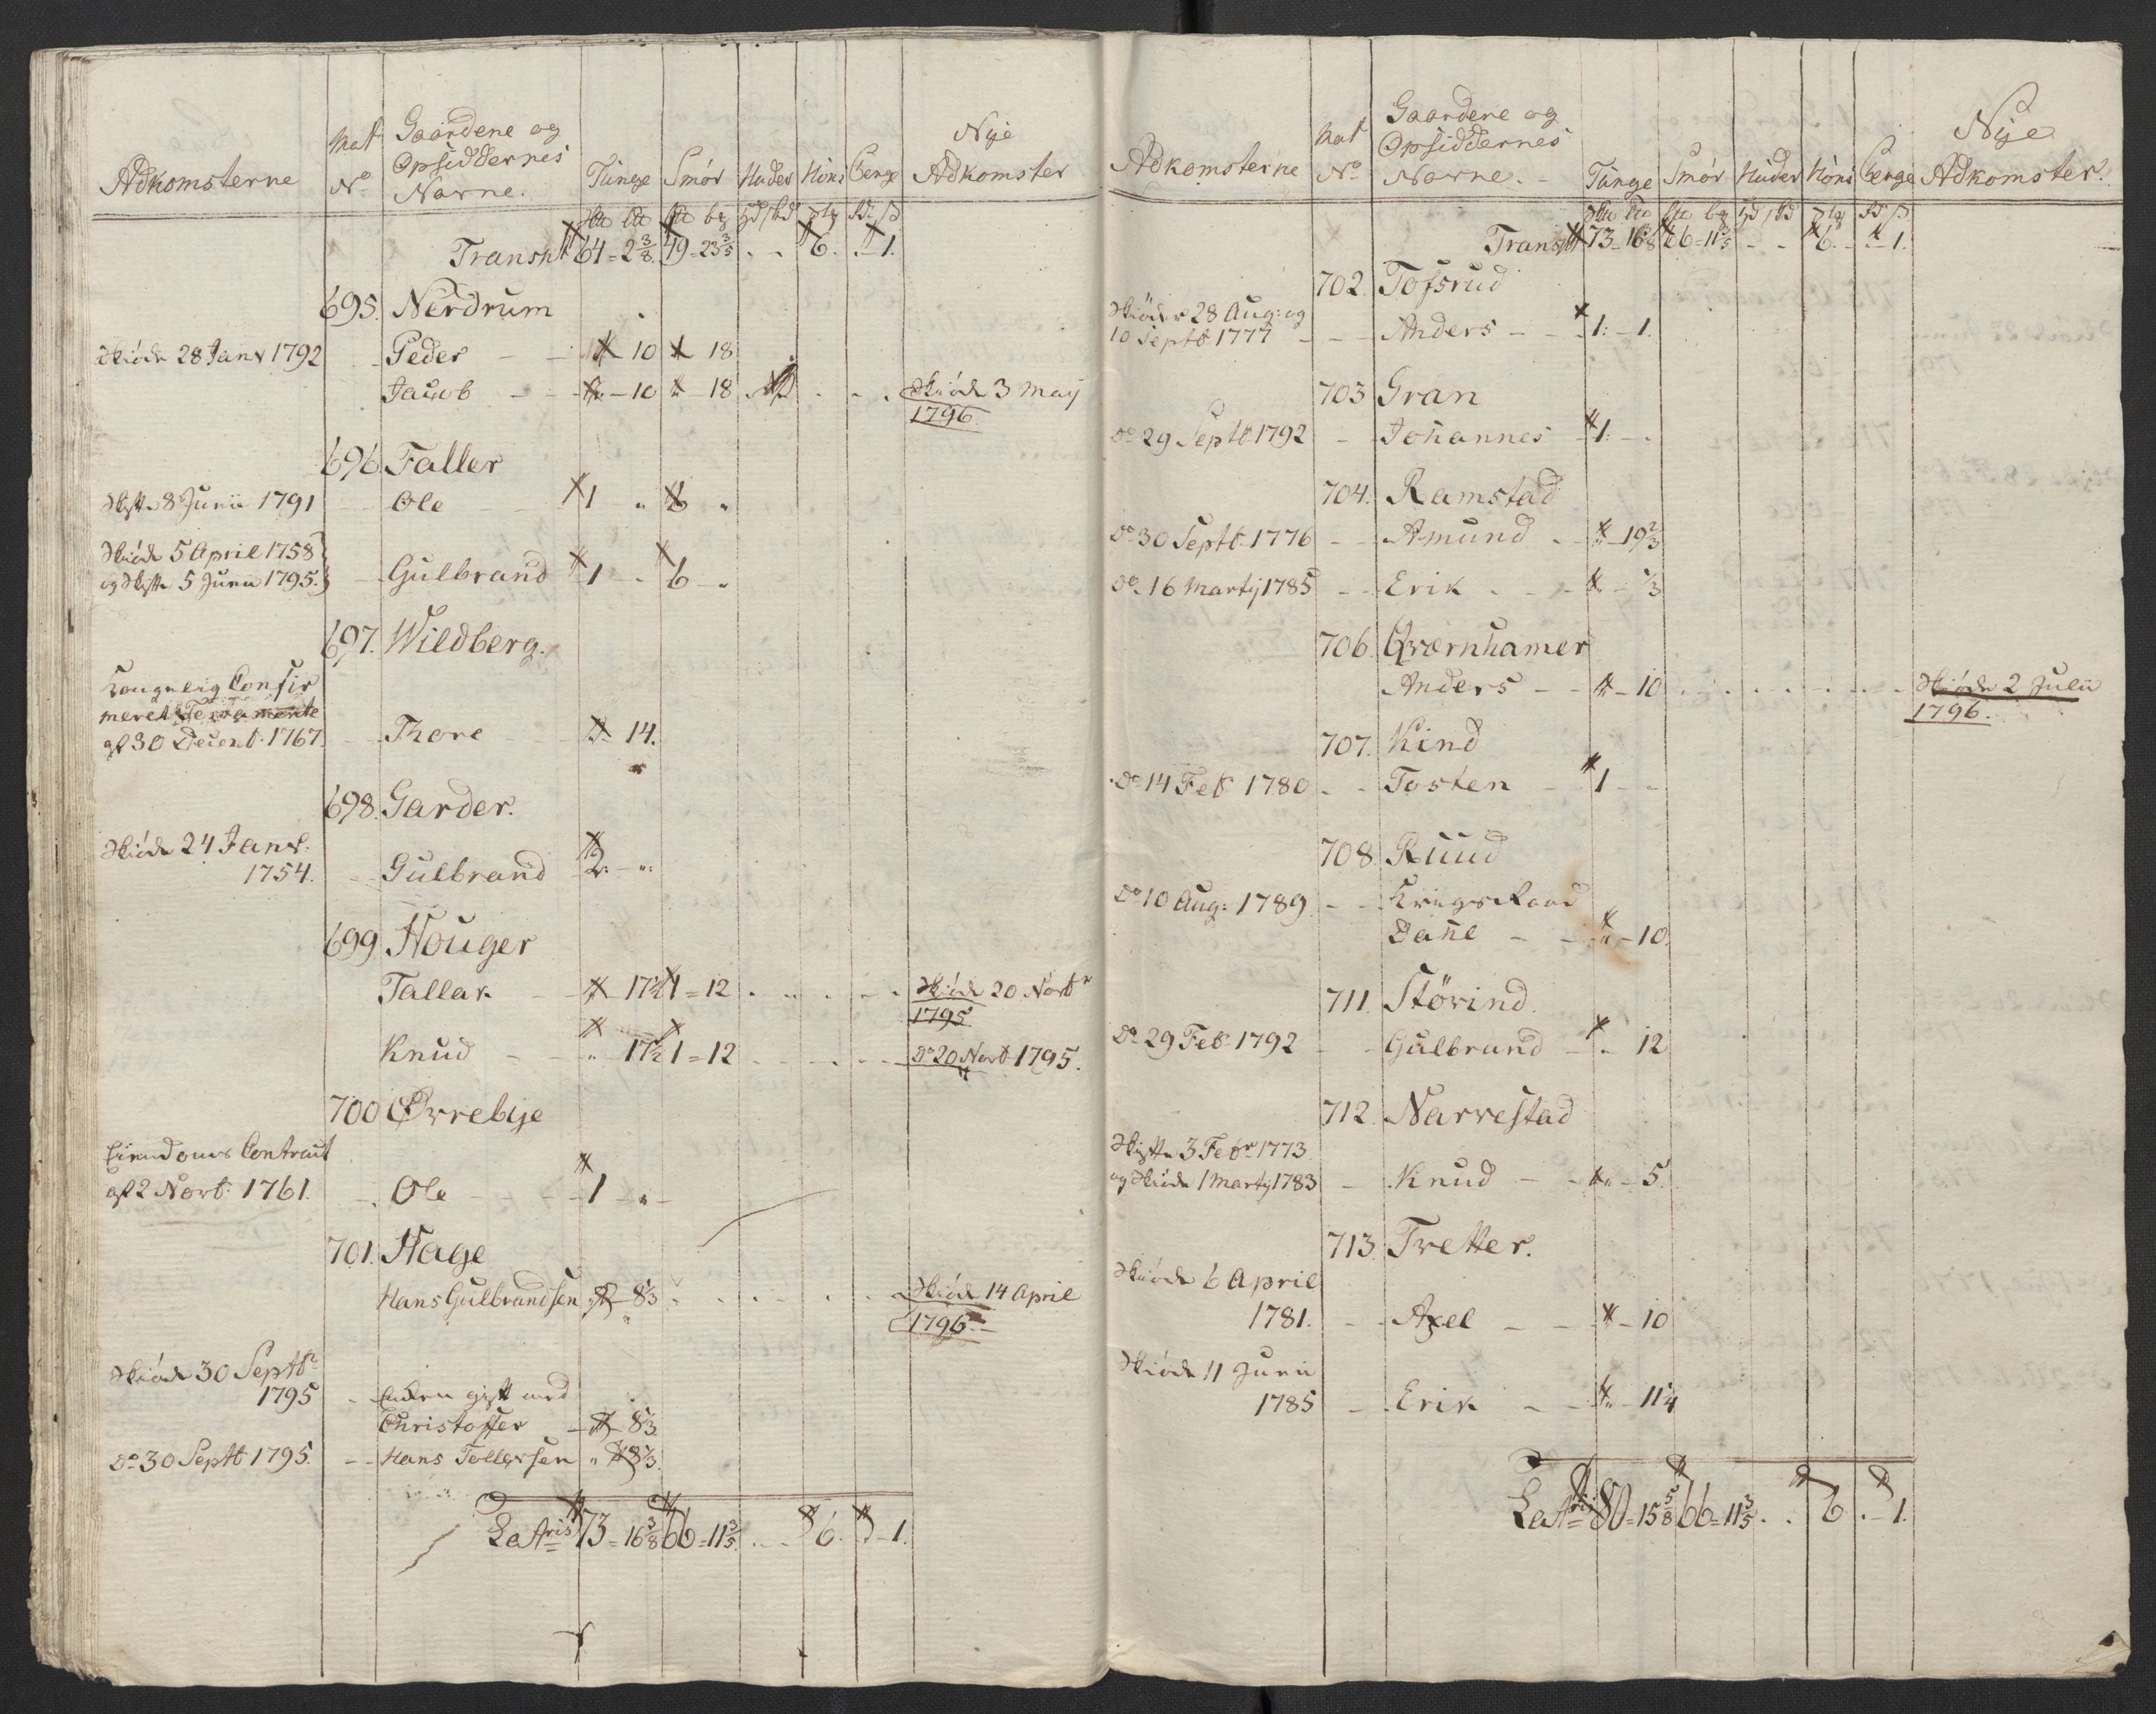 Adkomsterne Mat: No Gaardene og Opsiddernes Navne. Tunge Smør Huder Höns Penge Nye Adkomster
Transpt 64 = 2 3/8 49 = 23 3/5 . . 6. . - 1.
695. Nerdrum
Skiöde 28 Janr 1792 - - Peder - - 10 18
Jacob - - - 10 18 Skiöde 3 Maÿ
1796.
696. Faller
Skifte 8 Junii 1791 - - Ole 1 " 6 "
Skiöde 5 April 1758
og Skifte 5 Junii 1795. - Gulbrand 1 - 6 -
697. Wildberg.
Kongelig Confir
meret Testamente
af 30 Decemb: 1767. - - Thore - 14.
698. Garder.
Skiöde 24 Janr:
1754. - - Gulbrand 2. - ":
699 Houger
Tallak - - 17½ 1 = 12 . . . . . Skiöde 20 Novbr
1795
Knud - - " 17½ 1 = 12 - - - - Do 20 Novb 1795.
700 Ørrebye
Eiendoms Contract
af 2 Novb: 1761. - Ole - - 1 - " -
701. Hage
Hans Gulbrandsen 8⅓ . . . . . Skiöde 14 April
1796. -
Skiöde 30 Septbr
1795 - Enken gift med
Christopher - 8⅓
Do 30 Septb 1795. - - Hans Tollefsen " 8⅓.
Latris 73 = 16 3/8 66 = 11 3/5 . . 6. . - 1.
Adkomsterne Mat No Gaardene og Opsiddernes Navne. - Tunge Smør Huder Höns Penge Nye Adkomster.
Transpt 73 - 16 3/8 66 = 11 3/5 - - 6. . - 1.
702. Tofsrud
Skiöder 28 Aug: og
10 Septb 1777 - - - Anders - - 1: - 1.
703 Gran
Do 29 Septb 1792 - - Johannes - 1: - .
704. Ramstad
Do 30 Septb 1776 - - Amund . - " - 19⅔
Do 16 Martÿ 1785 - - Erik . . - - ⅓
706. Qværnhamer
Anders - - - 10 . . . . . . . Skiöde 2 Julii
1796.
707. Kind
Do 14 Feb 1780 . - Tosten - 1 - -
708. Ruud
Do 10 Aug: 1789 - - Krigs Raad
Dañe - - " - 10.
711. Störind.
Do 29 Feb 1792 - - Gulbrand - - 12
712. Narvestad
Skifte 3 Febr 1773
og Skiöde 1 Martÿ 1783 - - Knud - - " - 5.
713. Tretter.
Skiöde 6 April
1781. - - Axel - - - 10
Skiöde 11 Junii
1785 - - Erik - - " - 11¼
Latris 80 = 15 5/8 66 = 11 3/5 . . 6 . - 1.